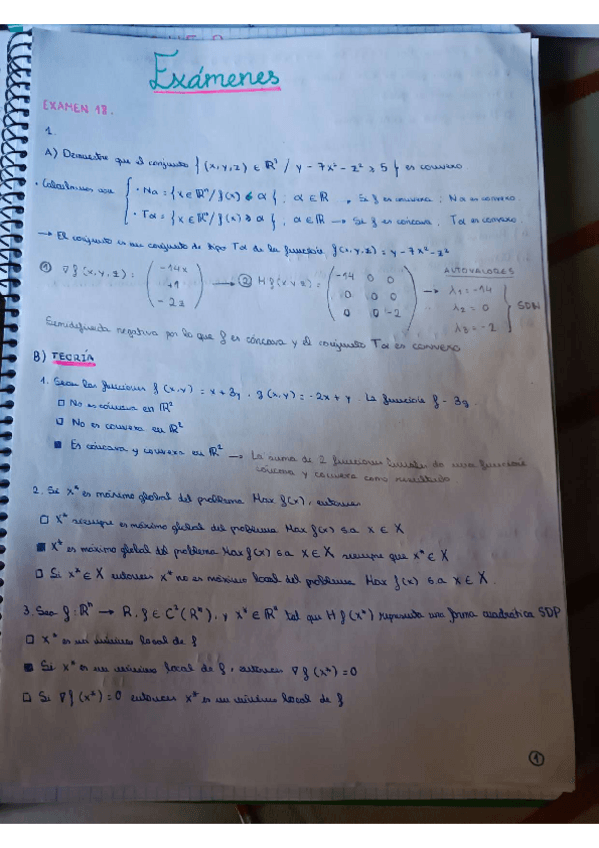 Exámenes
EXAMEN 18.
1.
A) Demuestre que el conjunto { (x,y,z) ∈ ℝ³ / y - 7x² - z² ≥ 5 } es convexo
· Calculamos que { · Nα = {x ∈ ℝⁿ / f(x) ≤ α} ; α ∈ ℝ → Si f es convexa, Nα es convexo
· Tα = {x ∈ ℝⁿ / f(x) ≥ α}, α ∈ ℝ → Si f es cóncava, Tα es convexo.
→ El conjunto es un conjunto de tipo Tα de la función f(x,y,z) = y - 7x² - z²
① ∇f(x,y,z) = ( -14x +1 -2z ) → ② Hf(x,y,z) = ( -14 0 0 0 0 0 0 0 -2 ) → AUTOVALORES λ₁ = -14 λ₂ = 0 λ₃ = -2 } SDN
Semidefinida negativa por lo que f es cóncava y el conjunto Tα es convexo
B) TEORÍA
1. Sean las funciones f(x,y) = x + 3y, g(x,y) = -2x + y. La función f - 3g
□ No es cóncava en ℝ²
□ No es convexa en ℝ²
■ Es cóncava y convexa en ℝ² → La suma de 2 funciones lineales da una función
cóncava y convexa como resultado
2. Si x* es máximo global del problema Max f(x), entonces
□ x* siempre es máximo global del problema Max f(x) s.a x ∈ X
■ x* es máximo global del problema Max f(x) s.a x ∈ X siempre que x* ∈ X
□ Si x* ∈ X entonces x* no es máximo local del problema Max f(x) s.a x ∈ X.
3. Sea f: ℝⁿ → ℝ, f ∈ C²(ℝⁿ), y x* ∈ ℝⁿ tal que Hf(x*) representa una forma cuadrática SDP
□ x* es un mínimo local de f
■ Si x* es un mínimo local de f, entonces ∇f(x*) = 0
□ Si ∇f(x*) = 0 entonces x* es un mínimo local de f
1